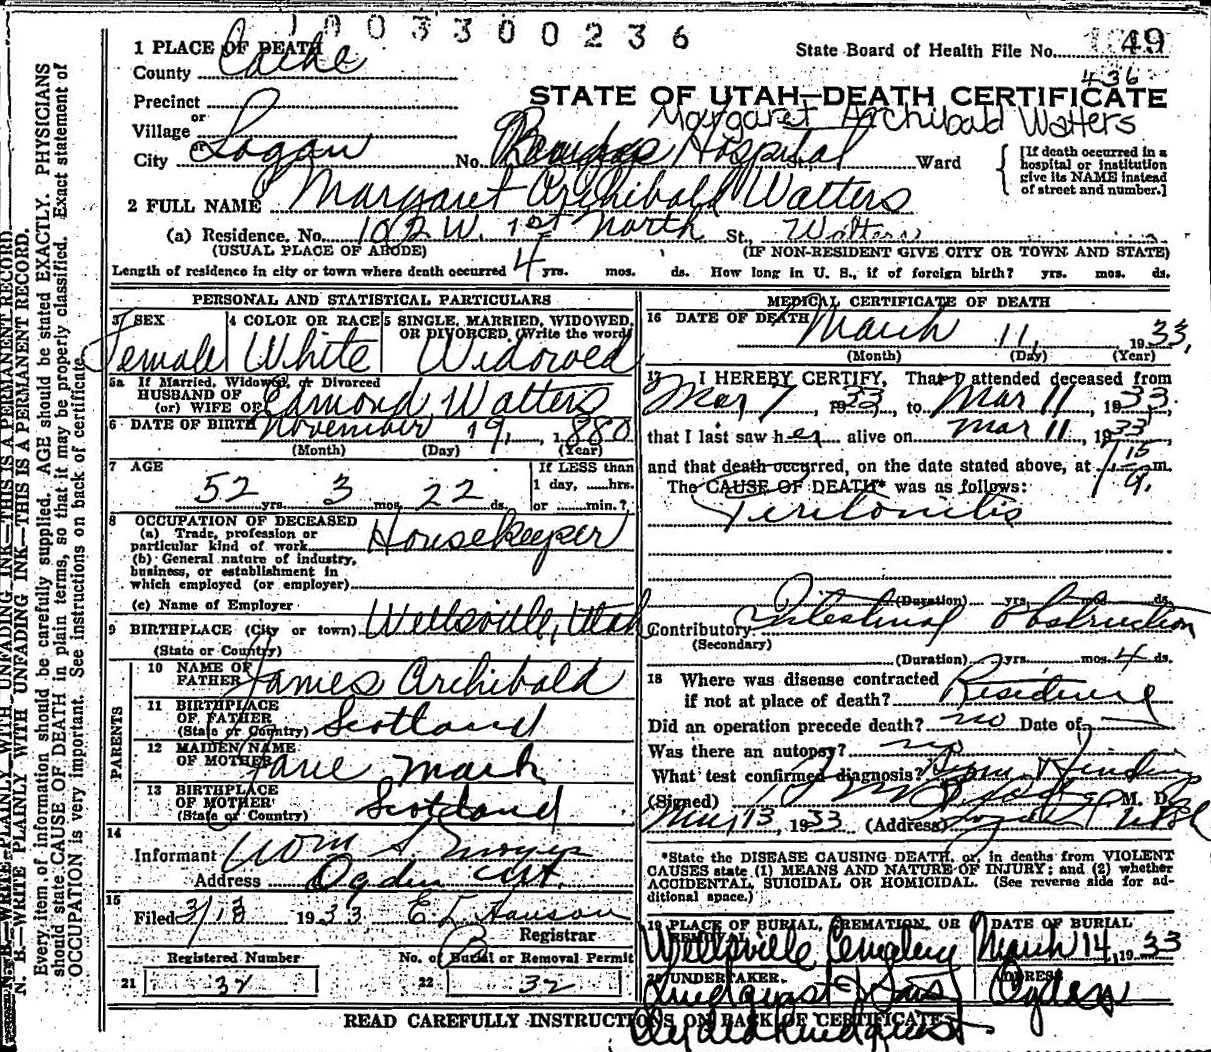 1003300236
1 PLACE OF DEATH
County Cache
State Board of Health File No. 49
436
Precinct
or
Village
City Logan No. Hospital Ward
STATE OF UTAH—DEATH CERTIFICATE
Margaret Archibald Watters
[If death occurred in a hospital or institution give its NAME instead of street and number.]
2 FULL NAME Margaret Archibald Watters
(a) Residence. No. 102 W. 1st North St. Watters
(USUAL PLACE OF ABODE) (IF NON-RESIDENT GIVE CITY OR TOWN AND STATE)
Length of residence in city or town where death occurred 4 yrs. mos. ds. How long in U. S., if of foreign birth? yrs. mos. ds.
PERSONAL AND STATISTICAL PARTICULARS
3 SEX Female
4 COLOR OR RACE White
5 SINGLE, MARRIED, WIDOWED, OR DIVORCED. (Write the word) Widowed
5a If Married, Widowed, or Divorced
HUSBAND OF
(or) WIFE OF Edmond Watters
6 DATE OF BIRTH November 19, 1880
(Month) (Day) (Year)
7 AGE
52 yrs. 3 mos. 22 ds.
If LESS than
1 day, ......hrs.
or ......min.?
8 OCCUPATION OF DECEASED
(a) Trade, profession or
particular kind of work Housekeeper
(b) General nature of industry,
business, or establishment in
which employed (or employer)
(c) Name of Employer
9 BIRTHPLACE (City or town) Wellsville, Utah
(State or Country)
PARENTS
10 NAME OF FATHER James Archibald
11 BIRTHPLACE OF FATHER (State or Country) Scotland
12 MAIDEN NAME OF MOTHER Jane
13 BIRTHPLACE OF MOTHER (State or Country) Scotland
14
Informant Wm S
Address Ogden Ut.
15
Filed 3/13 1933 E. L. Hanson
Registrar
Registered Number No. of Burial or Removal Permit
21 32 22 32
MEDICAL CERTIFICATE OF DEATH
16 DATE OF DEATH March 11, 1933,
(Month) (Day) (Year)
17 I HEREBY CERTIFY, That I attended deceased from
Mar 7, 1933, to Mar 11, 1933,
that I last saw her alive on Mar 11, 1933,
and that death occurred, on the date stated above, at 1 15 a.m.
The CAUSE OF DEATH* was as follows:
Peritonitis
(Duration) yrs. mos. ds.
Contributory Intestinal Obstruction
(Secondary)
(Duration) yrs. mos. 4 ds.
18 Where was disease contracted
if not at place of death? Residence
Did an operation precede death? no Date of
Was there an autopsy? no
What test confirmed diagnosis?
(Signed) M. D.
13, 1933 (Address) Logan Utah
*State the DISEASE CAUSING DEATH, or, in deaths from VIOLENT
CAUSES state (1) MEANS AND NATURE OF INJURY; and (2) whether
ACCIDENTAL, SUICIDAL OR HOMICIDAL. (See reverse side for ad-
ditional space.)
19 PLACE OF BURIAL, CREMATION, OR REMOVAL DATE OF BURIAL
Wellsville Cemetery March 14, 1933
20 UNDERTAKER ADDRESS
Lindquist & Sons Ogden
Clyde Lindquist
READ CAREFULLY INSTRUCTIONS ON BACK OF CERTIFICATE
N. B.—WRITE PLAINLY WITH UNFADING INK—THIS IS A PERMANENT RECORD.
N. B.—WRITE PLAINLY WITH UNFADING INK—THIS IS A PERMANENT RECORD.
Every item of information should be carefully supplied. AGE should be stated EXACTLY. PHYSICIANS
should state CAUSE OF DEATH in plain terms, so that it may be properly classified. Exact statement of
OCCUPATION is very important. See instructions on back of certificate.